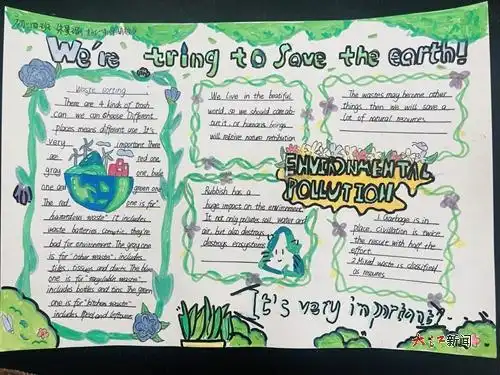 We're tring to save the earth!
Waste sorting
There are 4 kinds of trash
can we can choose Different
places means different use. It's
very important There
are red one,
gray one, bule
one and green one.
The red one is for"
hazardous waste". it includes
waste batteries. Cosmetic. they're
bad for environment. The gray one
is for "other waste", includes
tiles, tissues and diets. The blue
one is for "recyclable waste",
includes bottles and tins. The green
one is for "kitchen waste",
includes peel and leftovers.
We live in the beatiful
world, so we should care ab-
out it. or humans beings
will receive nature retribution
The wastes may become other
things. then we will save a
lot of natural resources.
ENVIRONMENTAL
POLLUTION
Rubbish has a
huge impact on the environment.
It not only pollutes soil, water and
air, but also destroys
destroys ecosystems
1. Garbage is in
place, civilization is twice
the result with half the
effort.
2. Mixed waste is classified
as
It's very important.
大江新闻